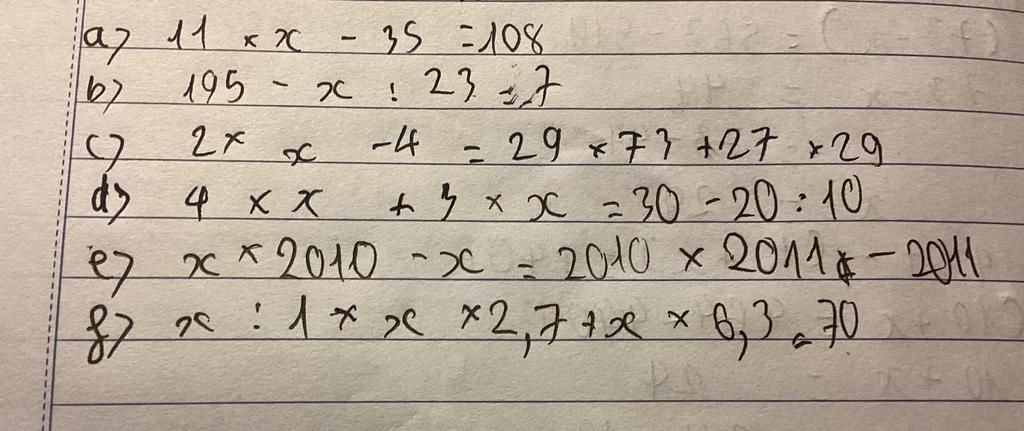 a) 11 × x - 35 = 108
b) 195 - x : 23 = 7
c) 2 × x - 4 = 29 × 73 + 27 × 29
d) 4 × x + 3 × x = 30 - 20 : 10
e) x × 2010 - x = 2010 × 2011 - 2011
f) x : 1 × x × 2,7 + x × 6,3 = 70